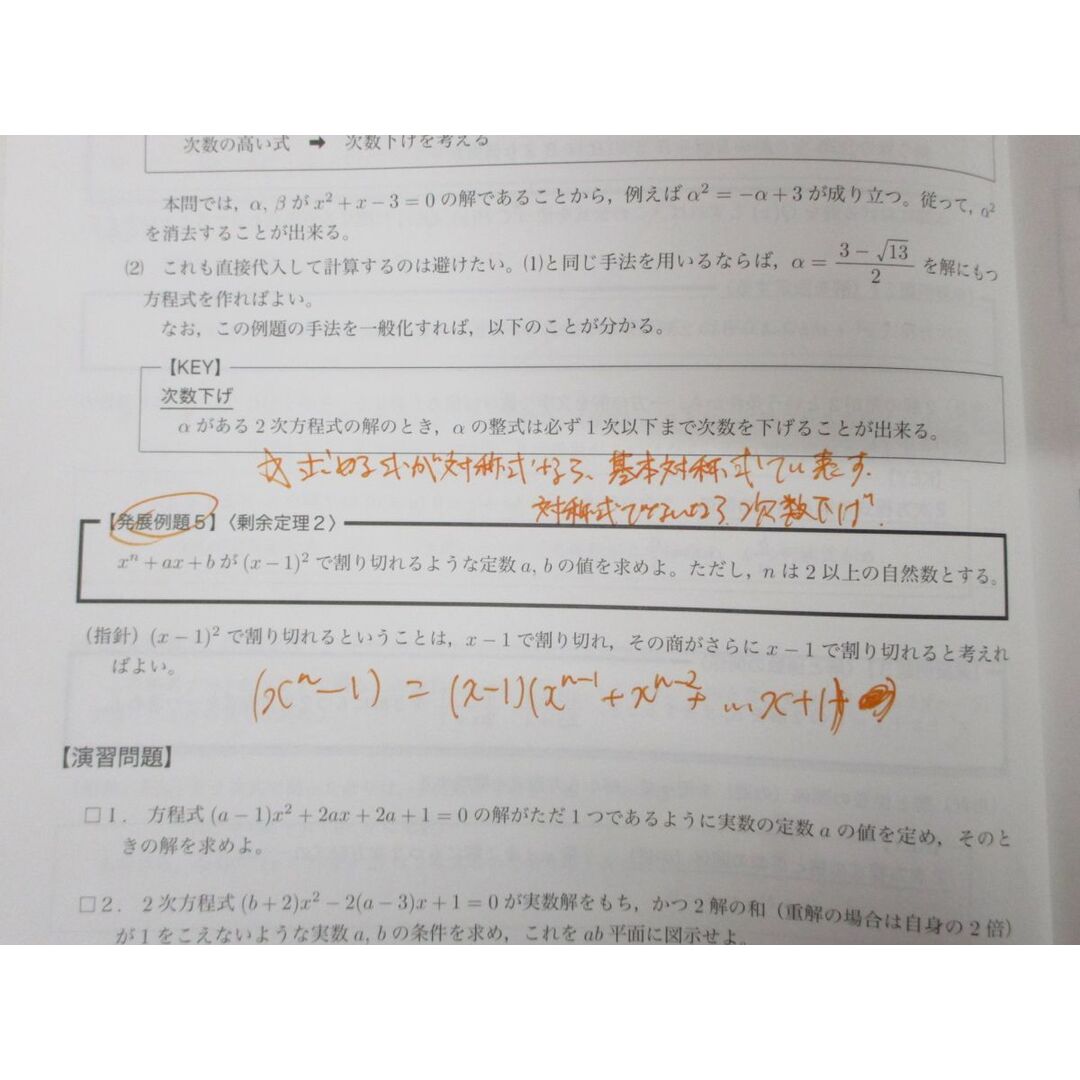 次数の高い式 ➡ 次数下げを考える
本問では，α, β が x² + x − 3 = 0 の解であることから，例えば α² = −α + 3 が成り立つ。従って，α²
を消去することが出来る。
(2) これも直接代入して計算するのは避けたい。(1)と同じ手法を用いるならば，α = (3 − √13)/2 を解にもつ
方程式を作ればよい。
なお，この例題の手法を一般化すれば，以下のことが分かる。
【KEY】
次数下げ
α がある 2 次方程式の解のとき，α の整式は必ず 1 次以下まで次数を下げることが出来る。
求める式が対称式なら、基本対称式で表す.
対称式でないなら、次数下げ.
【発展例題５】〈剰余定理２〉
xⁿ + ax + b が (x − 1)² で割り切れるような定数 a, b の値を求めよ。ただし，n は 2 以上の自然数とする。
(指針) (x − 1)² で割り切れるということは，x − 1 で割り切れ，その商がさらに x − 1 で割り切れると考えれ
ばよい。
(xⁿ − 1) = (x−1)(xⁿ⁻¹ + xⁿ⁻² + … x + 1)
【演習問題】
□１． 方程式 (a − 1)x² + 2ax + 2a + 1 = 0 の解がただ 1 つであるように実数の定数 a の値を定め，そのと
きの解を求めよ。
□２． 2 次方程式 (b + 2)x² − 2(a − 3)x + 1 = 0 が実数解をもち，かつ 2 解の和（重解の場合は自身の 2 倍）
が 1 をこえないような実数 a, b の条件を求め，これを ab 平面に図示せよ。